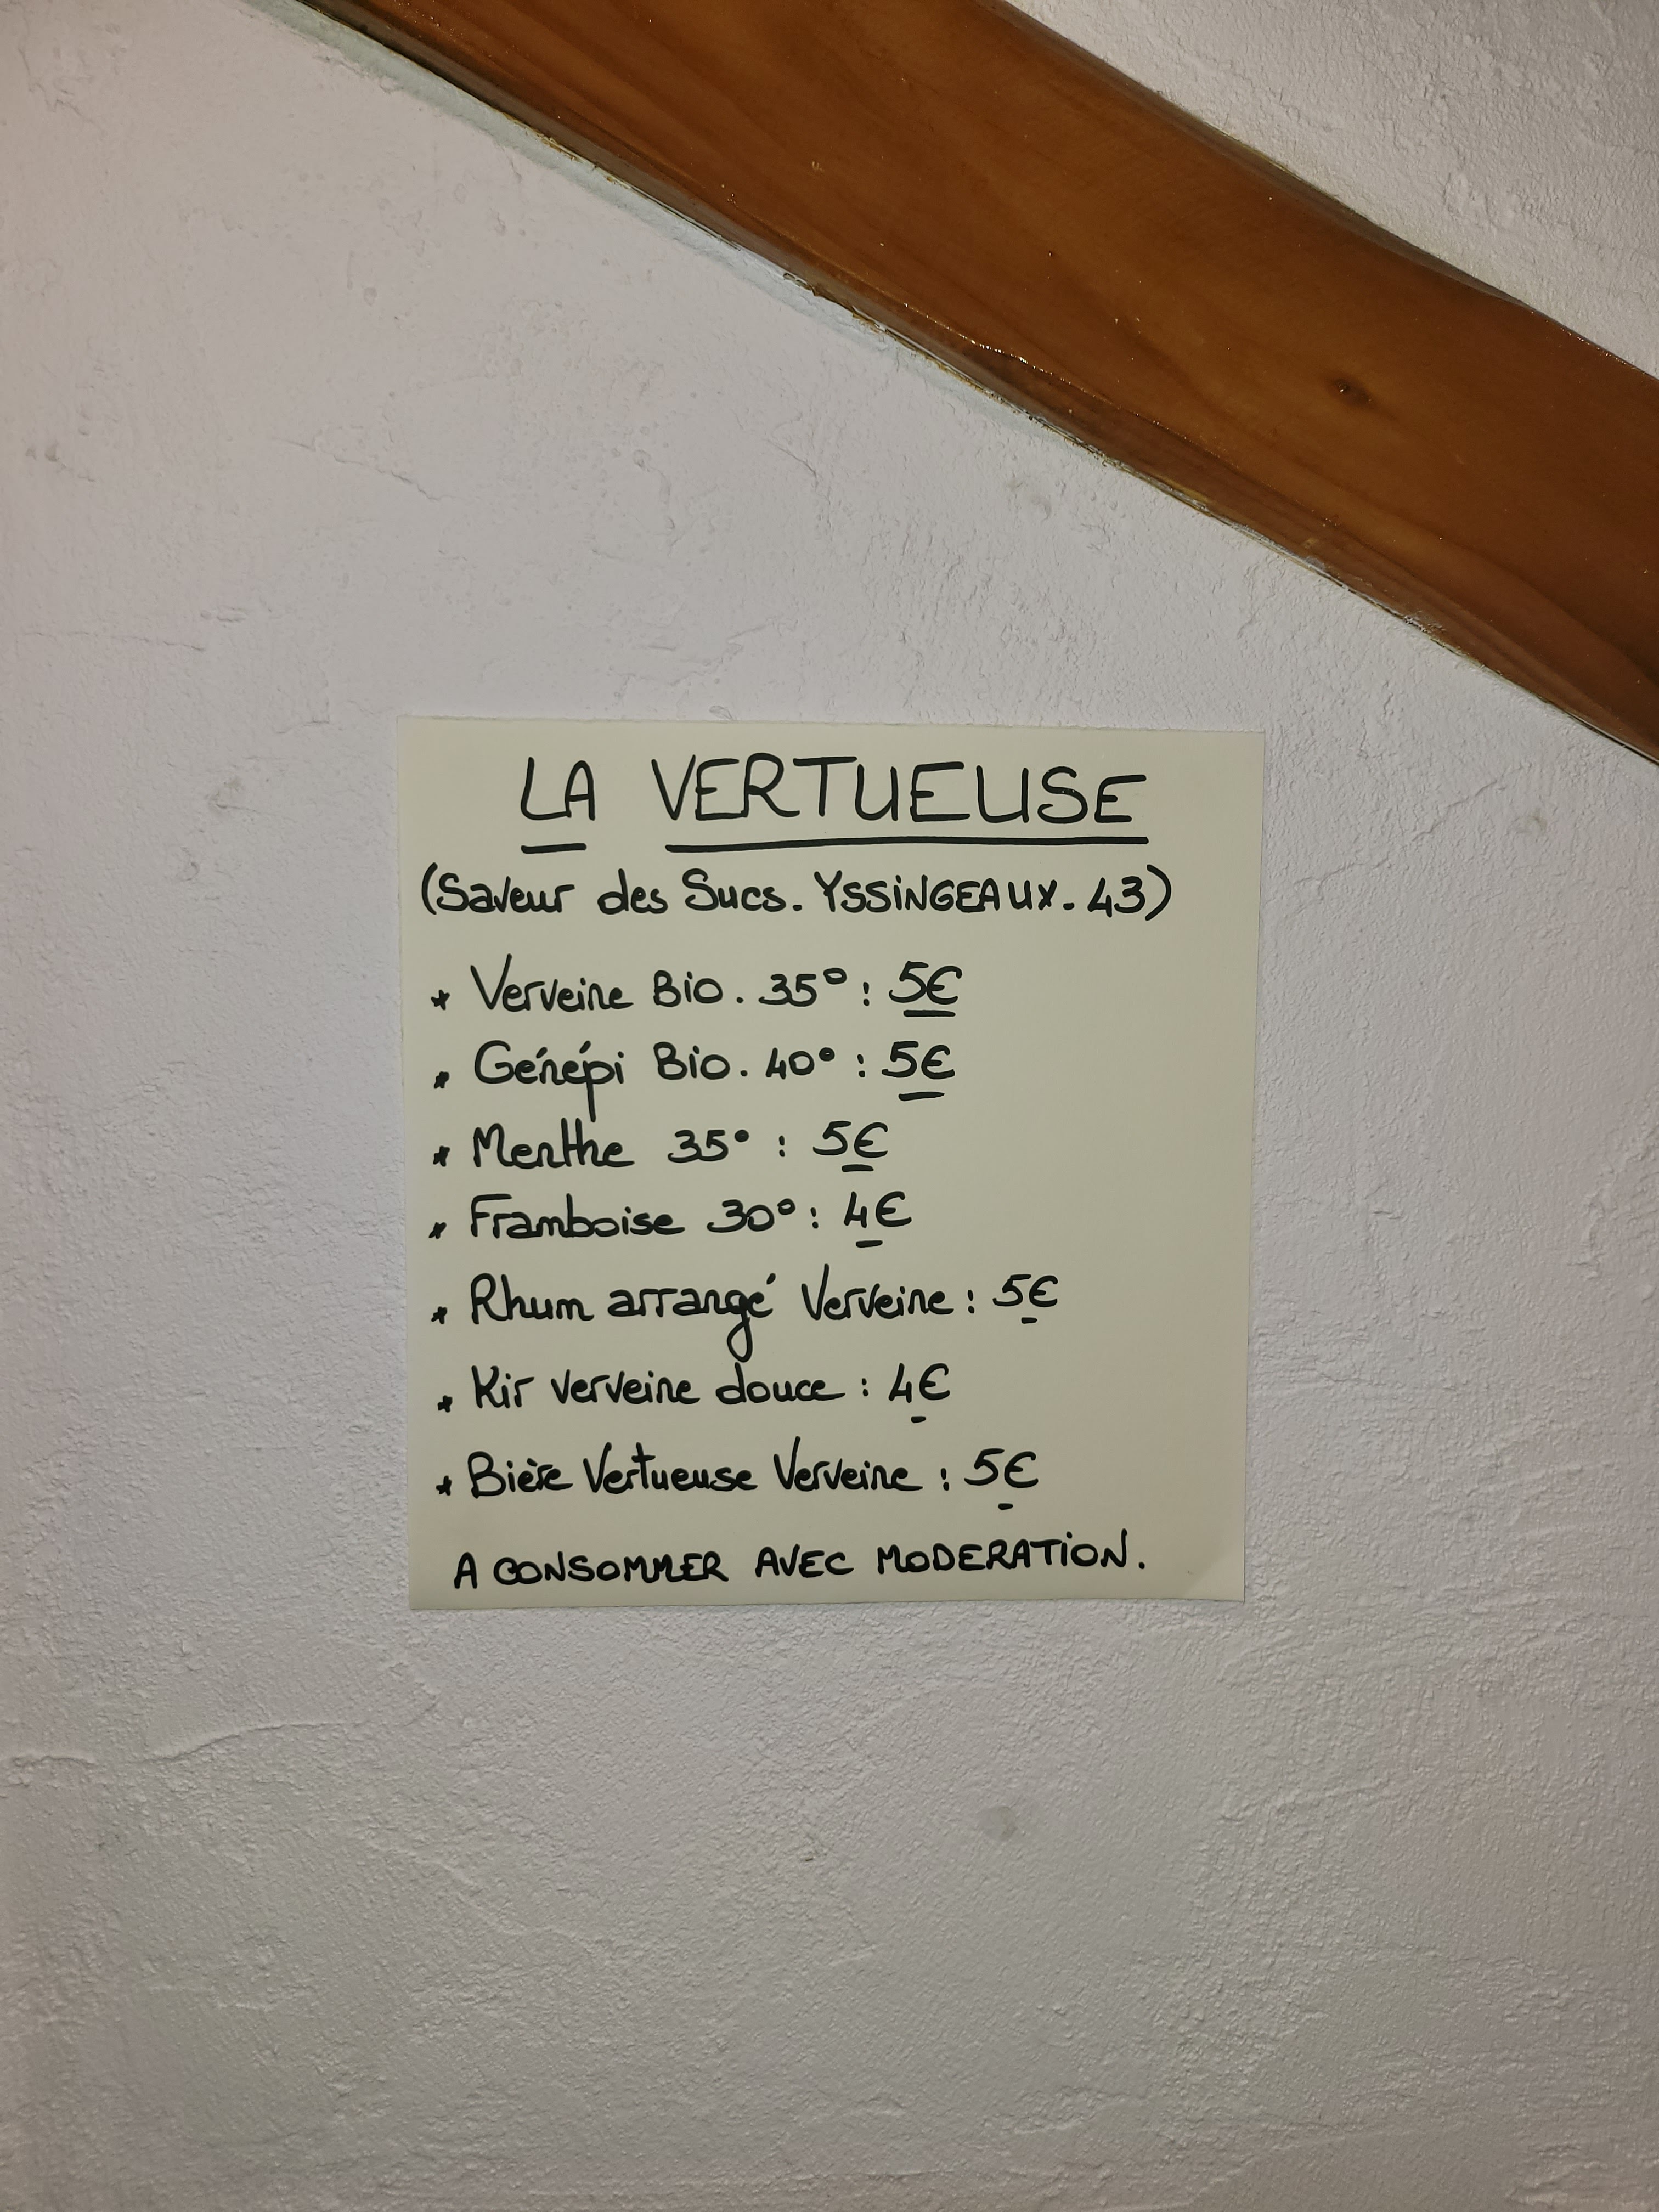 LA VERTUEUSE
(Saveur des Sucs. YSSiNGEAUX. 43)
* Verveine Bio. 35° : 5€
* Génépi Bio. 40° : 5€
* Menthe 35° : 5€
* Framboise 30° : 4€
* Rhum arrangé Verveine : 5€
* Kir verveine douce : 4€
* Bière Vertueuse Verveine : 5€
A CONSOMMER AVEC MODERATiON.